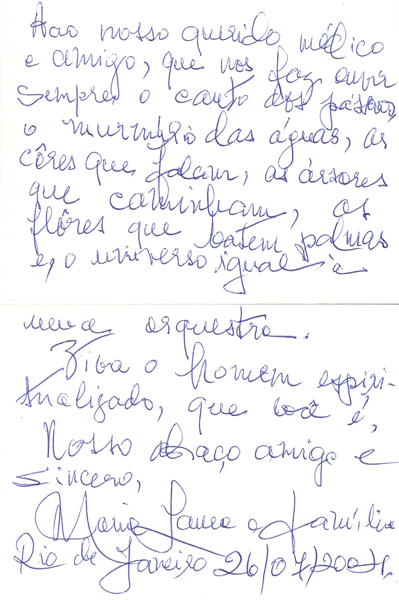 Aao nosso querido médico
e amigo, que nos faz ouvir
sempre o canto dos pássaros,
o murmúrio das águas, as
côres que falam, as árvores
que caminham, as
flôres que batem palmas
e, o universo igual a
uma orquestra.
Viva o homem espiri-
tualizado, que você é,
Nosso abraço amigo e
sincero,
Maria e família
Rio de Janeiro 26/07/